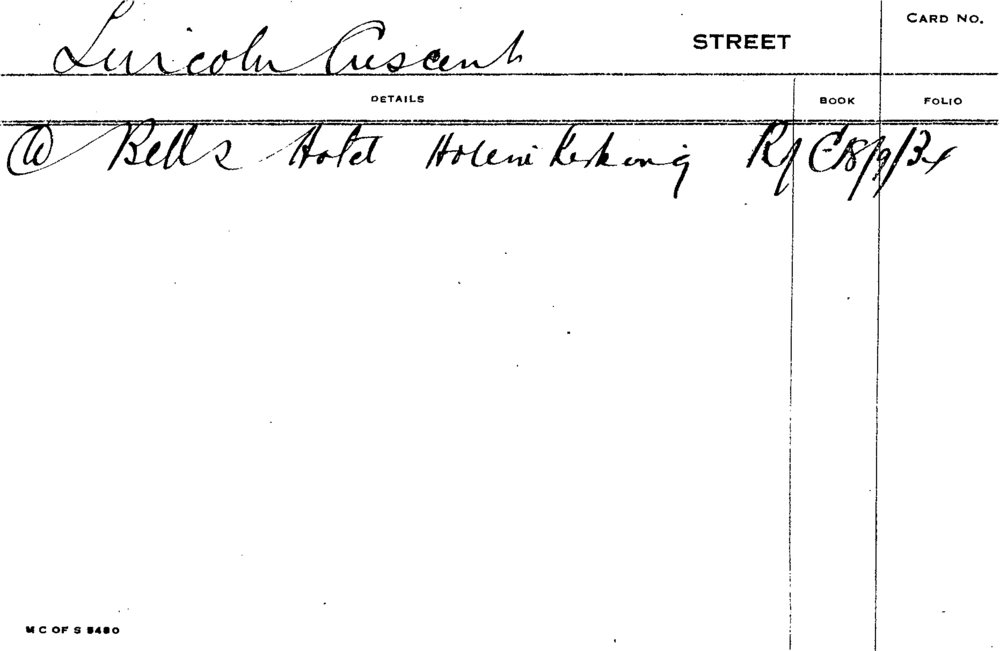 CARD NO.
Lincoln Crescent STREET
DETAILS BOOK FOLIO
@ Bells Hotel Hole in Kerbing Rf E18/9/34
M C OF S 5480